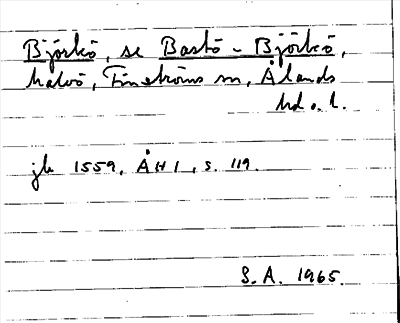 Björkö, se Bastö - Björkö,
halvö, Finströms sn, Ålands
hd o. l.
jb 1559, ÅH I, s. 119.
S. A. 1965.